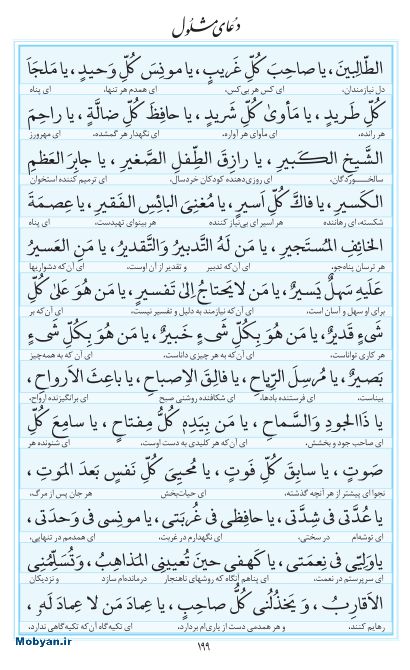 دعای مشلول
الطّالِبینَ، یا صاحِبَ کُلِّ غَریبٍ، یا مونِسَ کُلِّ وَحیدٍ، یا مَلجَاَ
دل نیازمندان، ای کس هر بی‌کس، ای همدم هر تنها، ای پناه
کُلِّ طَریدٍ، یا مَأویٰ کُلِّ شَریدٍ، یا حافِظَ کُلِّ ضالَّةٍ، یا راحِمَ
هر رانده، ای مأوای هر آواره، ای نگهدار هر گمشده، ای مهرورز
الشَّیخِ الکَبیرِ، یا رازِقَ الطِّفلِ الصَّغیرِ، یا جابِرَ العَظمِ
سالخوردگان، ای روزی‌دهنده کودکان خردسال، ای ترمیم کننده استخوان
الکَسیرِ، یا فاكَّ کُلِّ اَسیرٍ، یا مُغنِیَ البائِسِ الفَقیرِ، یا عِصمَةَ
شکسته، ای رهاننده هر اسیر ای بی‌نیاز کننده هر بینوای تهیدست، ای پناه
الخائِفِ المُستَجیرِ، یا مَن لَهُ التَّدبیرُ وَالتَّقدیرُ، یا مَنِ العَسیرُ
هر ترسان پناه‌جو، ای آن‌که تدبیر و تقدیر از آن اوست، ای آن‌که دشواریها
عَلَیهِ سَهلٌ یَسیرٌ، یا مَن لا یَحتاجُ اِلیٰ تَفسیرٍ، یا مَن هُوَ عَلیٰ کُلِّ
برای او سهل و آسان است، ای آن‌که نیازمند به دلیل و تفسیر نیست، ای آن‌که بر
شَیءٍ قَدیرٌ، یا مَن هُوَ بِکُلِّ شَیءٍ خَبیرٌ، یا مَن هُوَ بِکُلِّ شَیءٍ
هر کاری تواناست، ای آن‌که به هر چیزی داناست، ای آن‌که به همه‌چیز
بَصیرٌ، یا مُرسِلَ الرِّیاحِ، یا فالِقَ الاِصباحِ، یا باعِثَ الاَرواحِ،
بیناست، ای فرستنده بادها، ای شکافنده روشنی صبح ای برانگیزنده ارواح،
یا ذَا الجودِ وَالسَّماحِ، یا مَن بِیَدِهِ کُلُّ مِفتاحٍ، یا سامِعَ کُلِّ
ای صاحب جود و بخشش، ای آن‌که هر کلیدی به دست اوست، ای شنونده هر
صَوتٍ، یا سابِقَ کُلِّ فَوتٍ، یا مُحیِیَ کُلِّ نَفسٍ بَعدَ المَوتِ،
نجوا ای پیشتر از هر آنچه گذشته، ای حیات‌بخش هر جان پس از مرگ،
یا عُدَّتی فی شِدَّتی، یا حافِظی فی غُربَتی، یا مونِسی فی وَحدَتی،
ای توشه‌ام در سختی، ای نگهدارم در غربت، ای همدمم در تنهایی،
یا وَلِیّی فی نِعمَتی، یا کَهفی حینَ تُعیینِی المَذاهِبُ، وَ تُسَلِّمُنِی
ای سرپرستم در نعمت، ای پناهم آنگاه که روشهای ناهنجار درمانده‌ام سازد و نزدیکان
الاَقارِبُ، وَ یَخذُلُنی کُلُّ صاحِبٍ، یا عِمادَ مَن لا عِمادَ لَهُ،
رهایم کنند، و هر همدمی دست از یاری‌ام بردارد، ای تکیه‌گاه آن‌که تکیه‌گاهی ندارد،
۱۹۹
Mobyan.ir